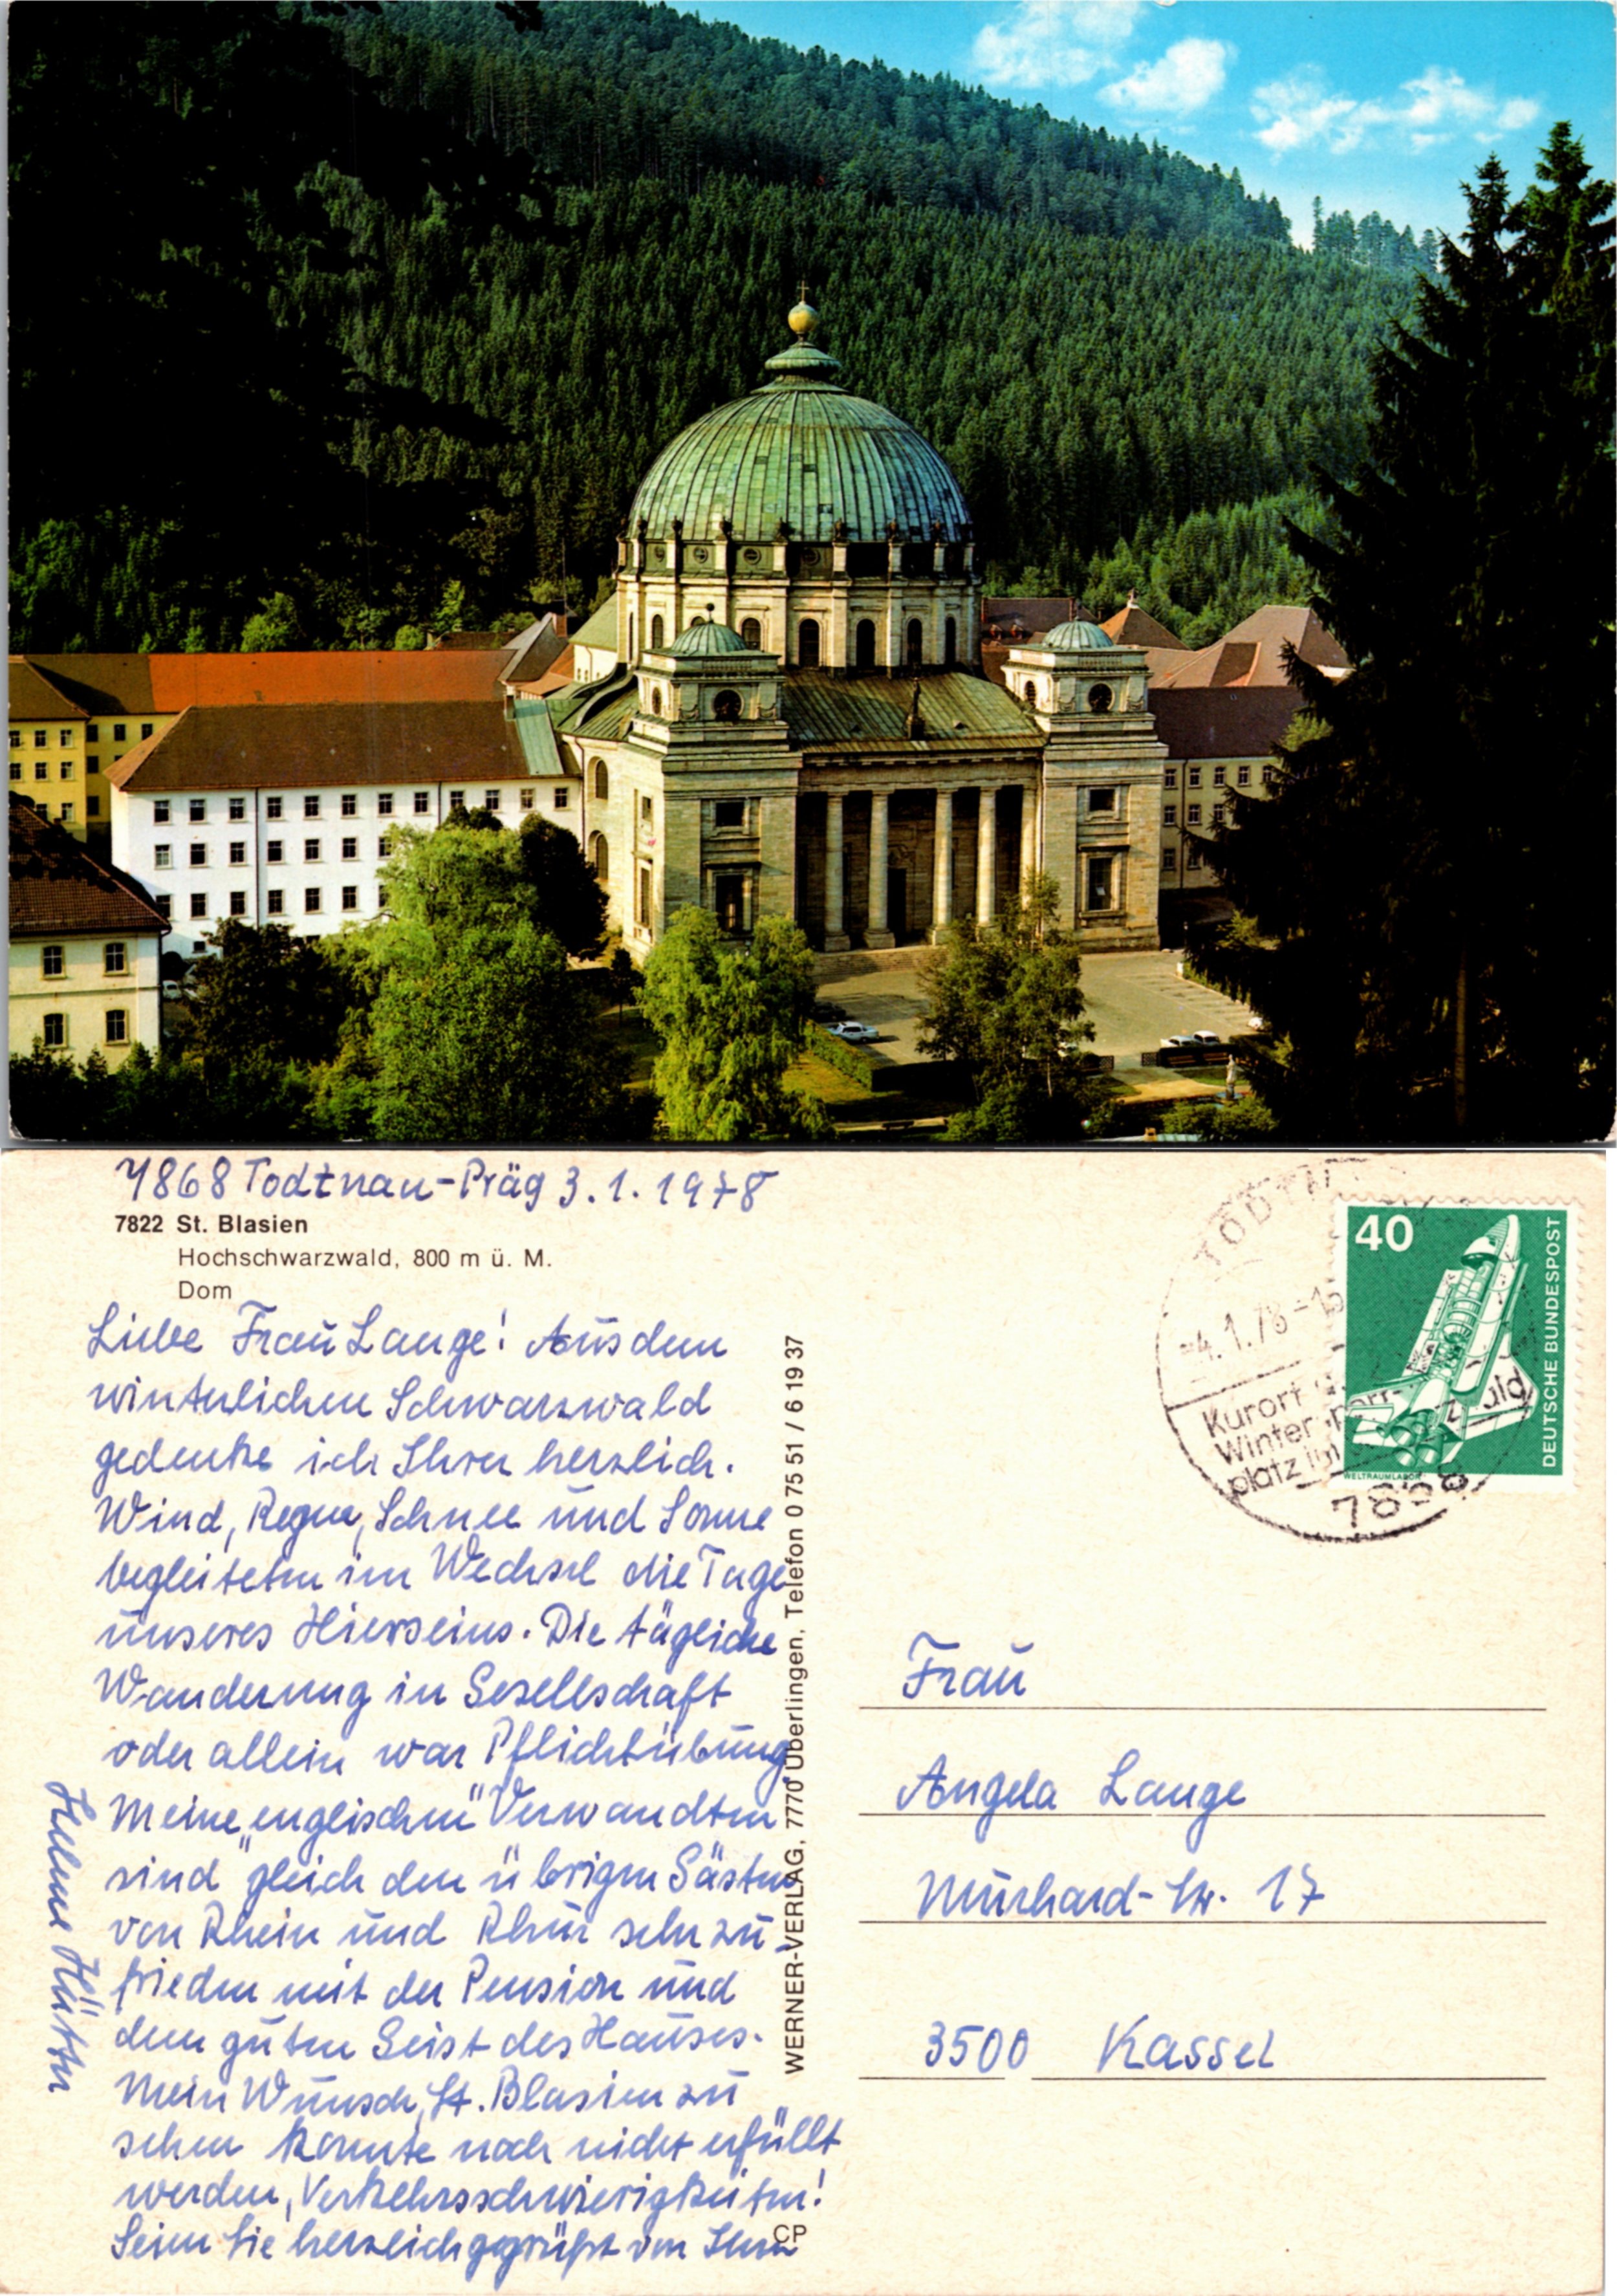 7868 Todtnau-Präg 3.1.1978
7822 St. Blasien
Hochschwarzwald, 800 m ü. M.
Dom
Liebe Frau Lange! Aus dem
winterlichen Schwarzwald
gedenke ich Ihrer herzlich.
Wind, Regen, Schnee und Sonne
begleiteten im Wechsel die Tage
unseres Hierseins. Die tägliche
Wanderung in Gesellschaft
oder allein war Pflichtübung.
Meine „englischen" Verwandten
sind gleich den übrigen Gästen
von Rhein und Rhur sehr zu-
frieden mit der Pension und
dem guten Geist des Hauses.
Mein Wunsch, St. Blasien zu
sehen konnte noch nicht erfüllt
werden, Verkehrsschwierigkeiten!
Seien Sie herzlich gegrüßt von Ihrer
WERNER-VERLAG, 7770 Überlingen, Telefon 0 75 51 / 6 19 37
CP
TODTN
-4.1.78-15
Kurort
Winter
platz im
7868
40
DEUTSCHE BUNDESPOST
WELTRAUMLABOR
Frau
Angela Lange
Murhard-Str. 17
3500 Kassel